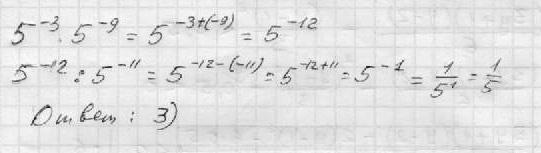 5⁻³ · 5⁻⁹ = 5⁻³⁺⁽⁻⁹⁾ = 5⁻¹²
5⁻¹² : 5⁻¹¹ = 5⁻¹²⁻⁽⁻¹¹⁾ = 5⁻¹²⁺¹¹ = 5⁻¹ = 1/5¹ = 1/5
Ответ: 3)